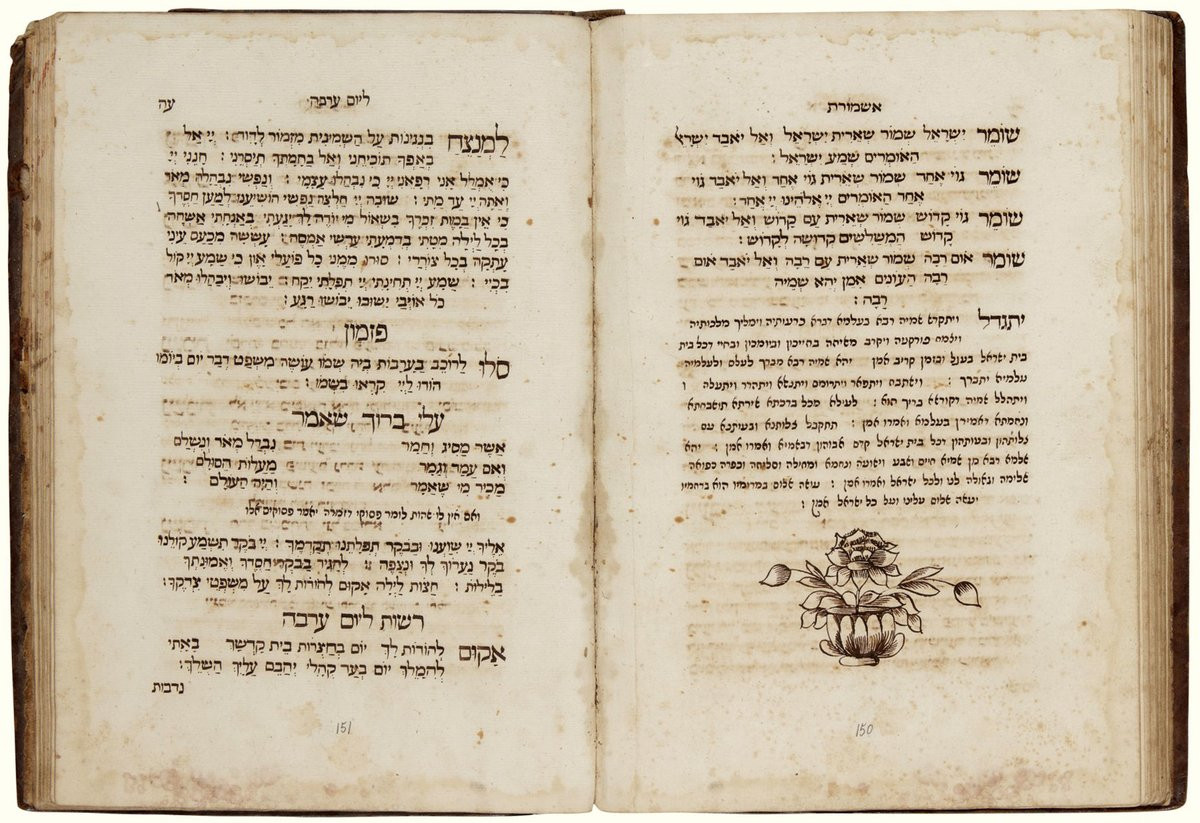 אשמורת
שומר ישראל שמור שארית ישראל ואל יאבד ישראל
האומרים שמע ישראל :
שומר גוי אחד שמור שארית גוי אחד ואל יאבד גוי
אחד האומרים יי אלהינו יי אחד :
שומר גוי קדוש שמור שארית עם קדוש ואל יאבד גוי
קדוש המשלשים קדושה לקדוש :
שומר אום רבה שמור שארית עם רבה ואל יאבד אום
רבה העונים אמן יהא שמיה
רבה :
יתגדל ויתקדש שמיה רבא בעלמא דברא כרעותיה וימליך מלכותיה
ויצמח פורקניה ויקרב משיחה בחייכון וביומכון ובחיי דכל בית
בית ישראל בעגל ובזמן קריב אמן יהא שמיה רבא מברך לעלם ולעלמיה
עלמיא יתברך : וישתבח ויתפאר ויתרומם ויתנשא ויתהדר ויתעלה ו
ויתהלל שמיה דקודשא בריך הוא : לעילא מכל ברכתא שירתא תושבחתא
ונחמתא דאמירן בעלמא ואמרו אמן : תתקבל צלותנא ובעותנא עם
צלותהון ובעותהון דכל בית ישראל קדם אבוהון דבשמיא ואמרו אמן : יהא
שלמא רבא מן שמיא חיים ושבע וישועה ונחמא ומחילה וסליחה וכפרה רפואה
שלימה וגאולה לנו ולכל ישראל ואמרו אמן : עושה שלום במרומיו הוא ברחמיו
יעשה שלום עלינו ועל כל ישראל אמן :
150
ליום ערבה עה
לַמְנַצֵחַ בנגינות על השמינית מזמור לדוד : יי אל
באפך תוכיחני ואל בחמתך תיסרני : חנני יי
כי אמלל אני רפאני יי כי נבהלו עצמי : ונפשי נבהלה מאד
ואתה יי עד מתי : שובה יי חלצה נפשי הושיעני למען חסדך
כי אין במות זכרך בשאול מי יודה לך יגעתי באנחתי אשחה
בכל לילה מטתי בדמעתי ערשי אמסה : עששה מכעס עיני
עתקה בכל צוררי : סורו ממני כל פועלי און כי שמע יי קול
בכיי : שמע יי תחינתי יי תפלתי יקח : יבושו ויבהלו מאד
כל אויבי ישובו יבושו רגע :
פזמון
סלו לרוכב בערבות ביה שמו עושה משפט דבר יום ביומו
הודו ליי קראו בשמו :
עלי ברוך שאמר
אשר מסיג וחמר נבדל מאד ונשלם
ואם עמד וגמר מעלות הסולם
מכיר מי שאמר והיה העולם :
ואם אין לו שהות לומר פסוקי דזמרה יאמר פסוקים אלו
אליך יי שועתי ובבקר תפלתנו תקדמך : יי בקר תשמע קולנו
בקר נערוך לך ונצפה : להגיד בבקר חסדך ואמונתך
בלילות : חצות לילה אקום להודות לך על משפטי צדקך :
רשות ליום ערבה
אקום להודות לך יום בחצרות בית קדשך באתי
להמלך יום בער קהלי יהבם עליך השלך :
נדבות
151